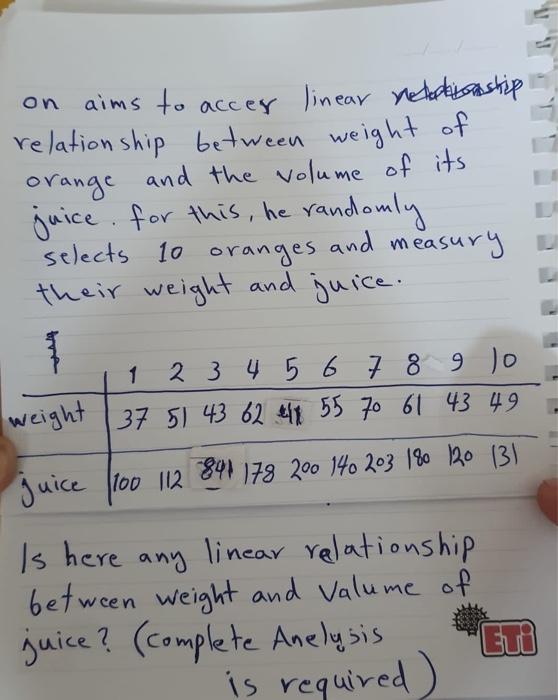 on aims to acces linear
relationship between weight of
orange and the volume of its
juice. for this, he randomly
selects 10 oranges and measury
their weight and juice.
1 2 3 4 5 6 7 8 9 10
weight 37 51 43 62 41 55 70 61 43 49
juice 100 112 841 178 200 140 203 180 120 131
Is here any linear relationship
between weight and Valume of
juice? (Complete Anelysis
is required)
ETi